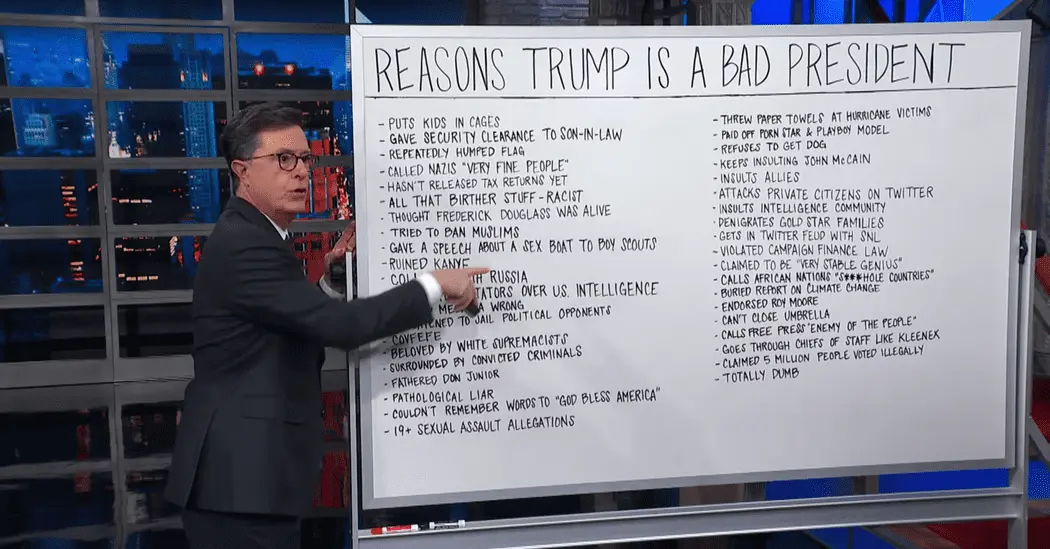 REASONS TRUMP IS A BAD PRESIDENT
- PUTS KIDS IN CAGES
- GAVE SECURITY CLEARANCE TO SON-IN-LAW
- REPEATEDLY HUMPED FLAG
- CALLED NAZIS "VERY FINE PEOPLE"
- HASN'T RELEASED TAX RETURNS YET
- ALL THAT BIRTHER STUFF - RACIST
- THOUGHT FREDERICK DOUGLASS WAS ALIVE
- TRIED TO BAN MUSLIMS
- GAVE A SPEECH ABOUT A SEX BOAT TO BOY SCOUTS
- RUINED KANYE
RUSSIA
OVER U.S. INTELLIGENCE
WRONG
TO JAIL POLITICAL OPPONENTS
- COVFEFE
- BELOVED BY WHITE SUPREMACISTS
- SURROUNDED BY CONVICTED CRIMINALS
- FATHERED DON JUNIOR
- PATHOLOGICAL LIAR
- COULDN'T REMEMBER WORDS TO "GOD BLESS AMERICA"
- 19+ SEXUAL ASSAULT ALLEGATIONS
- THREW PAPER TOWELS AT HURRICANE VICTIMS
- PAID OFF PORN STAR & PLAYBOY MODEL
- REFUSES TO GET DOG
- KEEPS INSULTING JOHN McCAIN
- INSULTS ALLIES
- ATTACKS PRIVATE CITIZENS ON TWITTER
- INSULTS INTELLIGENCE COMMUNITY
- DENIGRATES GOLD STAR FAMILIES
- GETS IN TWITTER FEUD WITH SNL
- VIOLATED CAMPAIGN FINANCE LAW
- CLAIMED TO BE "VERY STABLE GENIUS"
- CALLS AFRICAN NATIONS "S***HOLE COUNTRIES"
- BURIED REPORT ON CLIMATE CHANGE
- ENDORSED ROY MOORE
- CAN'T CLOSE UMBRELLA
- CALLS FREE PRESS "ENEMY OF THE PEOPLE"
- GOES THROUGH CHIEFS OF STAFF LIKE KLEENEK
- CLAIMED 5 MILLION PEOPLE VOTED ILLEGALLY
- TOTALLY DUMB